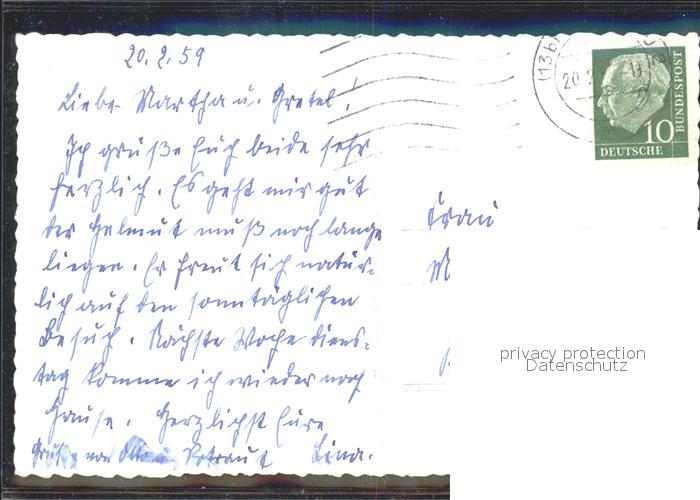 20.2.59
Liebe Martha u. Gretel!
Ich grüße Euch beide sehr
herzlich. Es geht mir gut
der Helmut muß noch lange
liegen. Er freut sich natür-
lich auf den sonntäglichen
Besuch. Nächste Woche Diens-
tag komme ich wieder nach
Hause. Herzlichst Eure
Grüße von Otto u. Rotraut Lina.
Frau
M
20.2.
10
DEUTSCHE
BUNDESPOST
privacy protection
Datenschutz